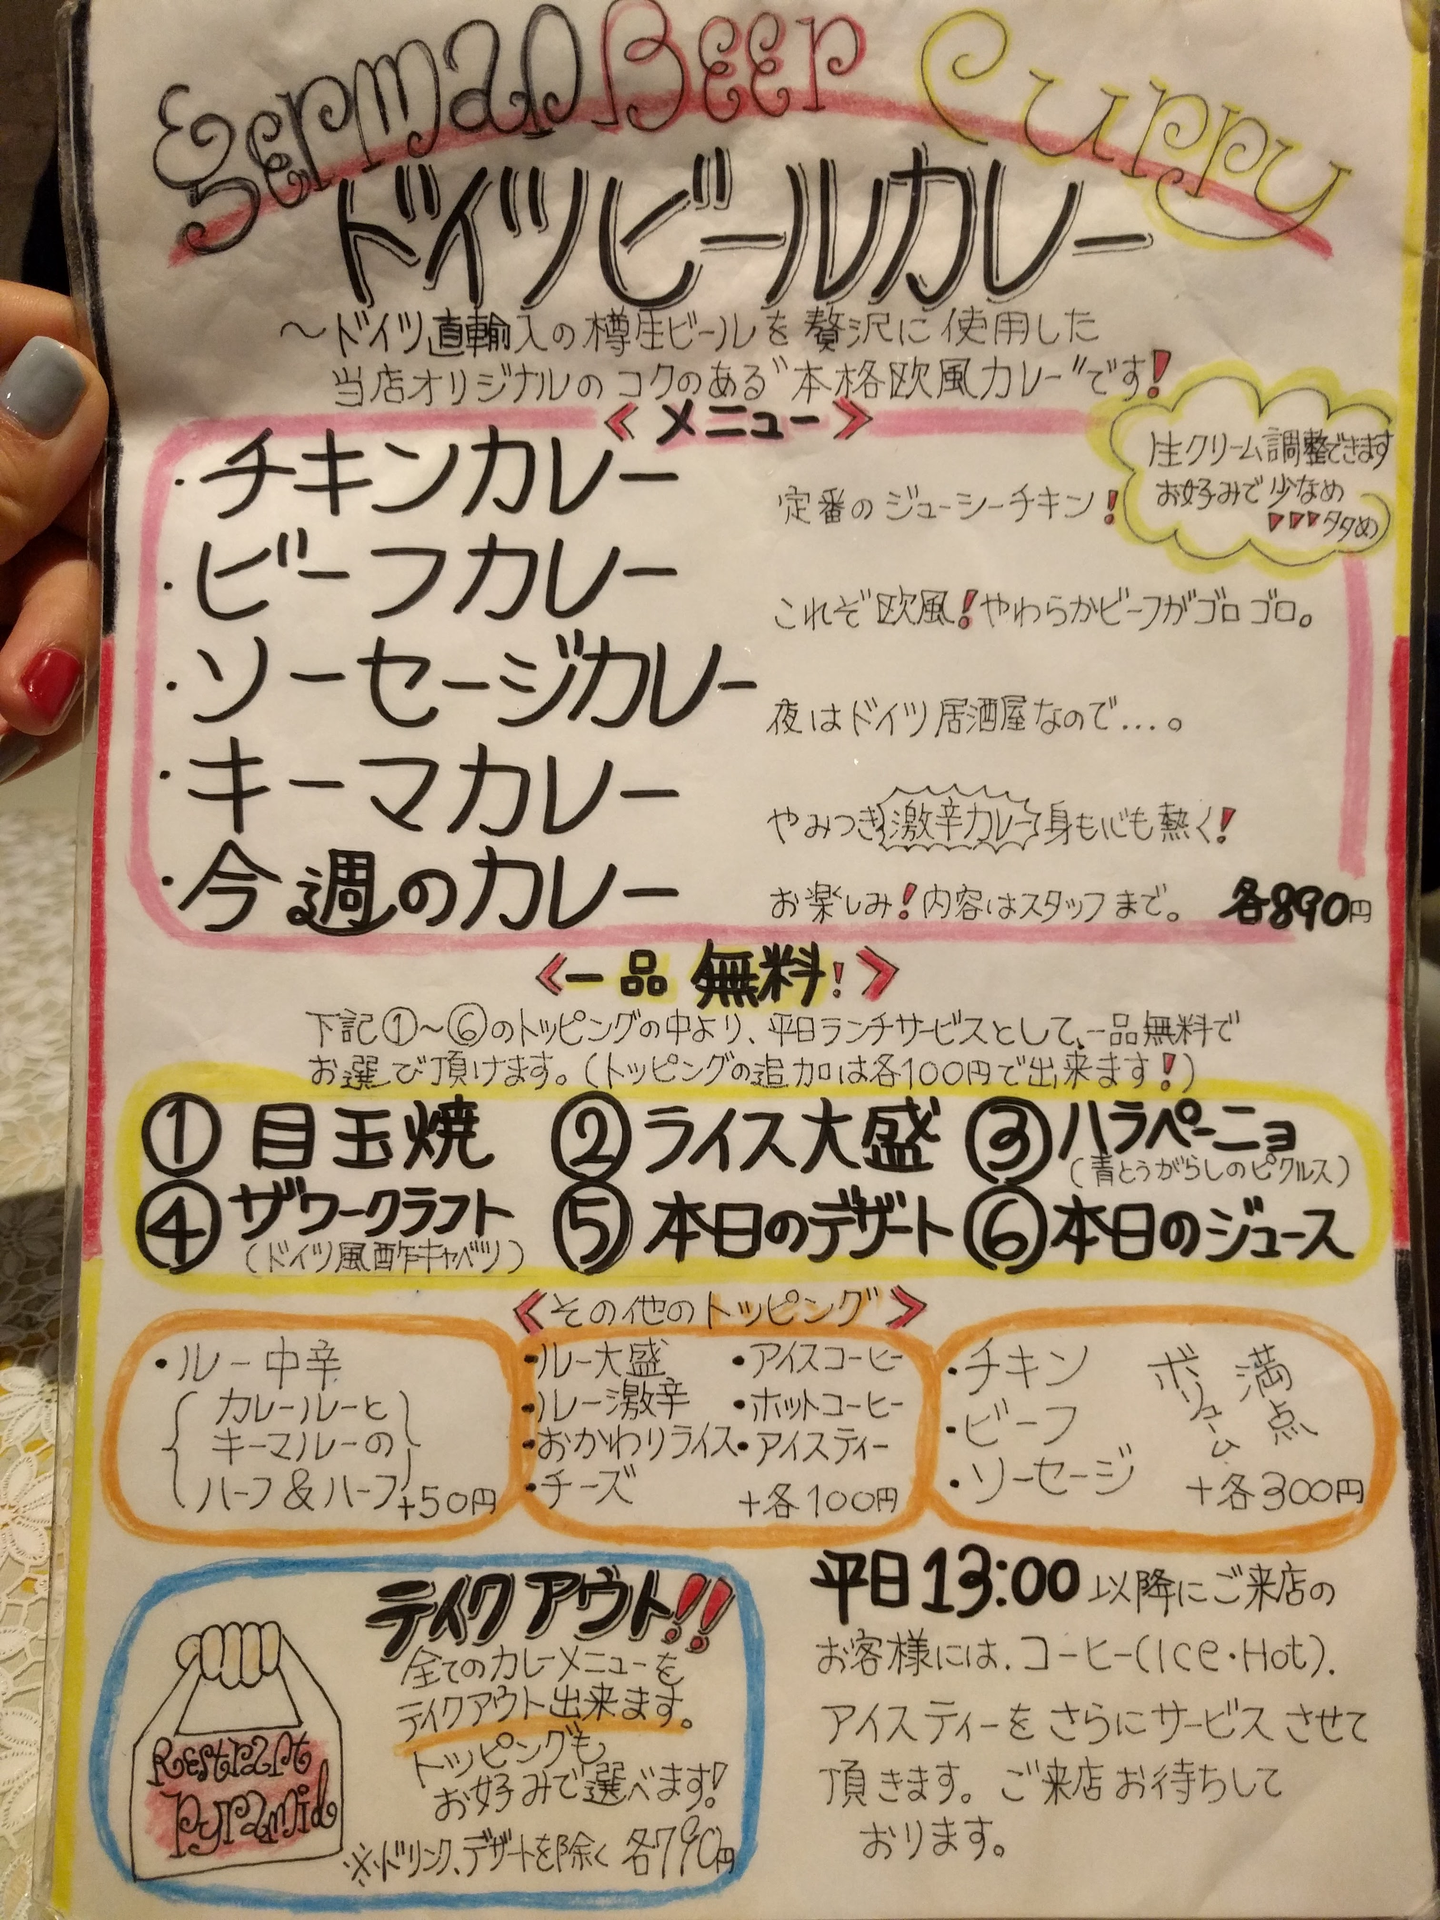 German Beer Curry
ドイツビールカレー
～ドイツ直輸入の樽生ビールを贅沢に使用した
当店オリジナルのコクのある"本格欧風カレー"です!
<メニュー>
生クリーム調整できます
お好みで少なめ
多め
・チキンカレー 定番のジューシーチキン!
・ビーフカレー これぞ欧風!やわらかビーフがゴロゴロ。
・ソーセージカレー 夜はドイツ居酒屋なので…。
・キーマカレー やみつき激辛カレー身も心も熱く!
・今週のカレー お楽しみ!内容はスタッフまで。 各890円
<一品 無料!>
下記①～⑥のトッピングの中より、平日ランチサービスとして、一品無料で
お選び頂けます。(トッピングの追加は各100円で出来ます!)
① 目玉焼 ② ライス大盛 ③ ハラペーニョ
(青とうがらしのピクルス)
④ ザワークラフト ⑤ 本日のデザート ⑥ 本日のジュース
(ドイツ風酢キャベツ)
<その他のトッピング>
・ルー中辛
カレールーと
キーマルーの
ハーフ&ハーフ +50円
・ルー大盛 ・アイスコーヒー
・ルー激辛 ・ホットコーヒー
・おかわりライス ・アイスティー
・チーズ +各100円
・チキン
・ビーフ
・ソーセージ
ボリューム
満点
+各300円
テイクアウト!!
全てのカレーメニューを
テイクアウト出来ます。
トッピングも
お好みで選べます!
※ドリンク、デザートを除く 各790円
Restrant
Pyramid
平日13:00以降にご来店の
お客様には、コーヒー(Ice・Hot)、
アイスティーをさらにサービスさせて
頂きます。ご来店お待ちして
おります。